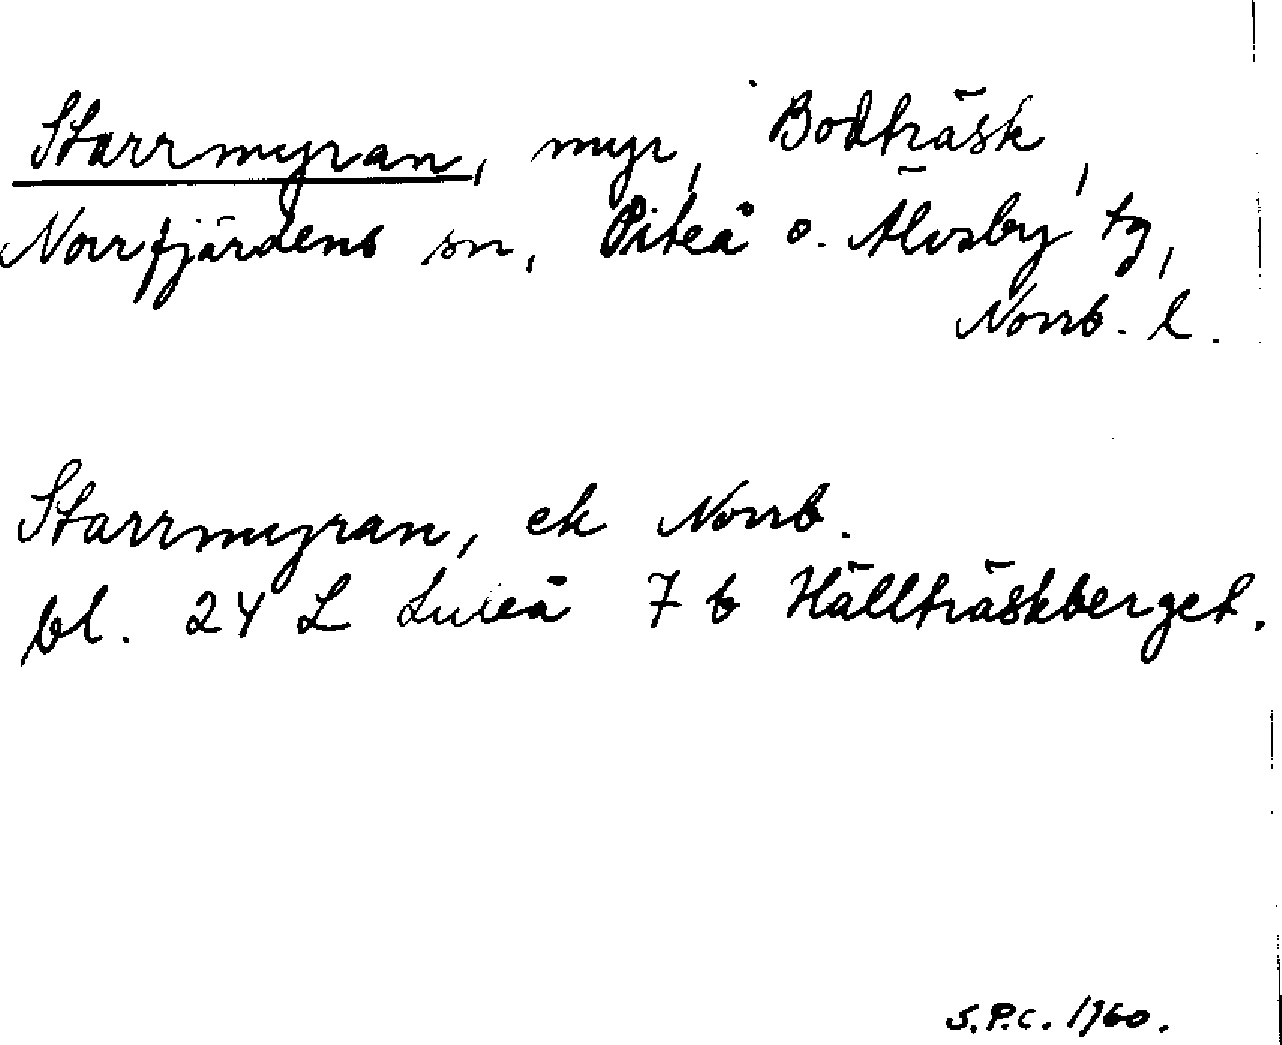 Starrmyran, myr, Bodträsk,
Norrfjärdens sn, Piteå o. Älvsby tg,
Norrb. l.
Starrmyran, ek Norrb.
bl. 24 L Luleå 7 b Hällträskberget.
S.P.C. 1960.